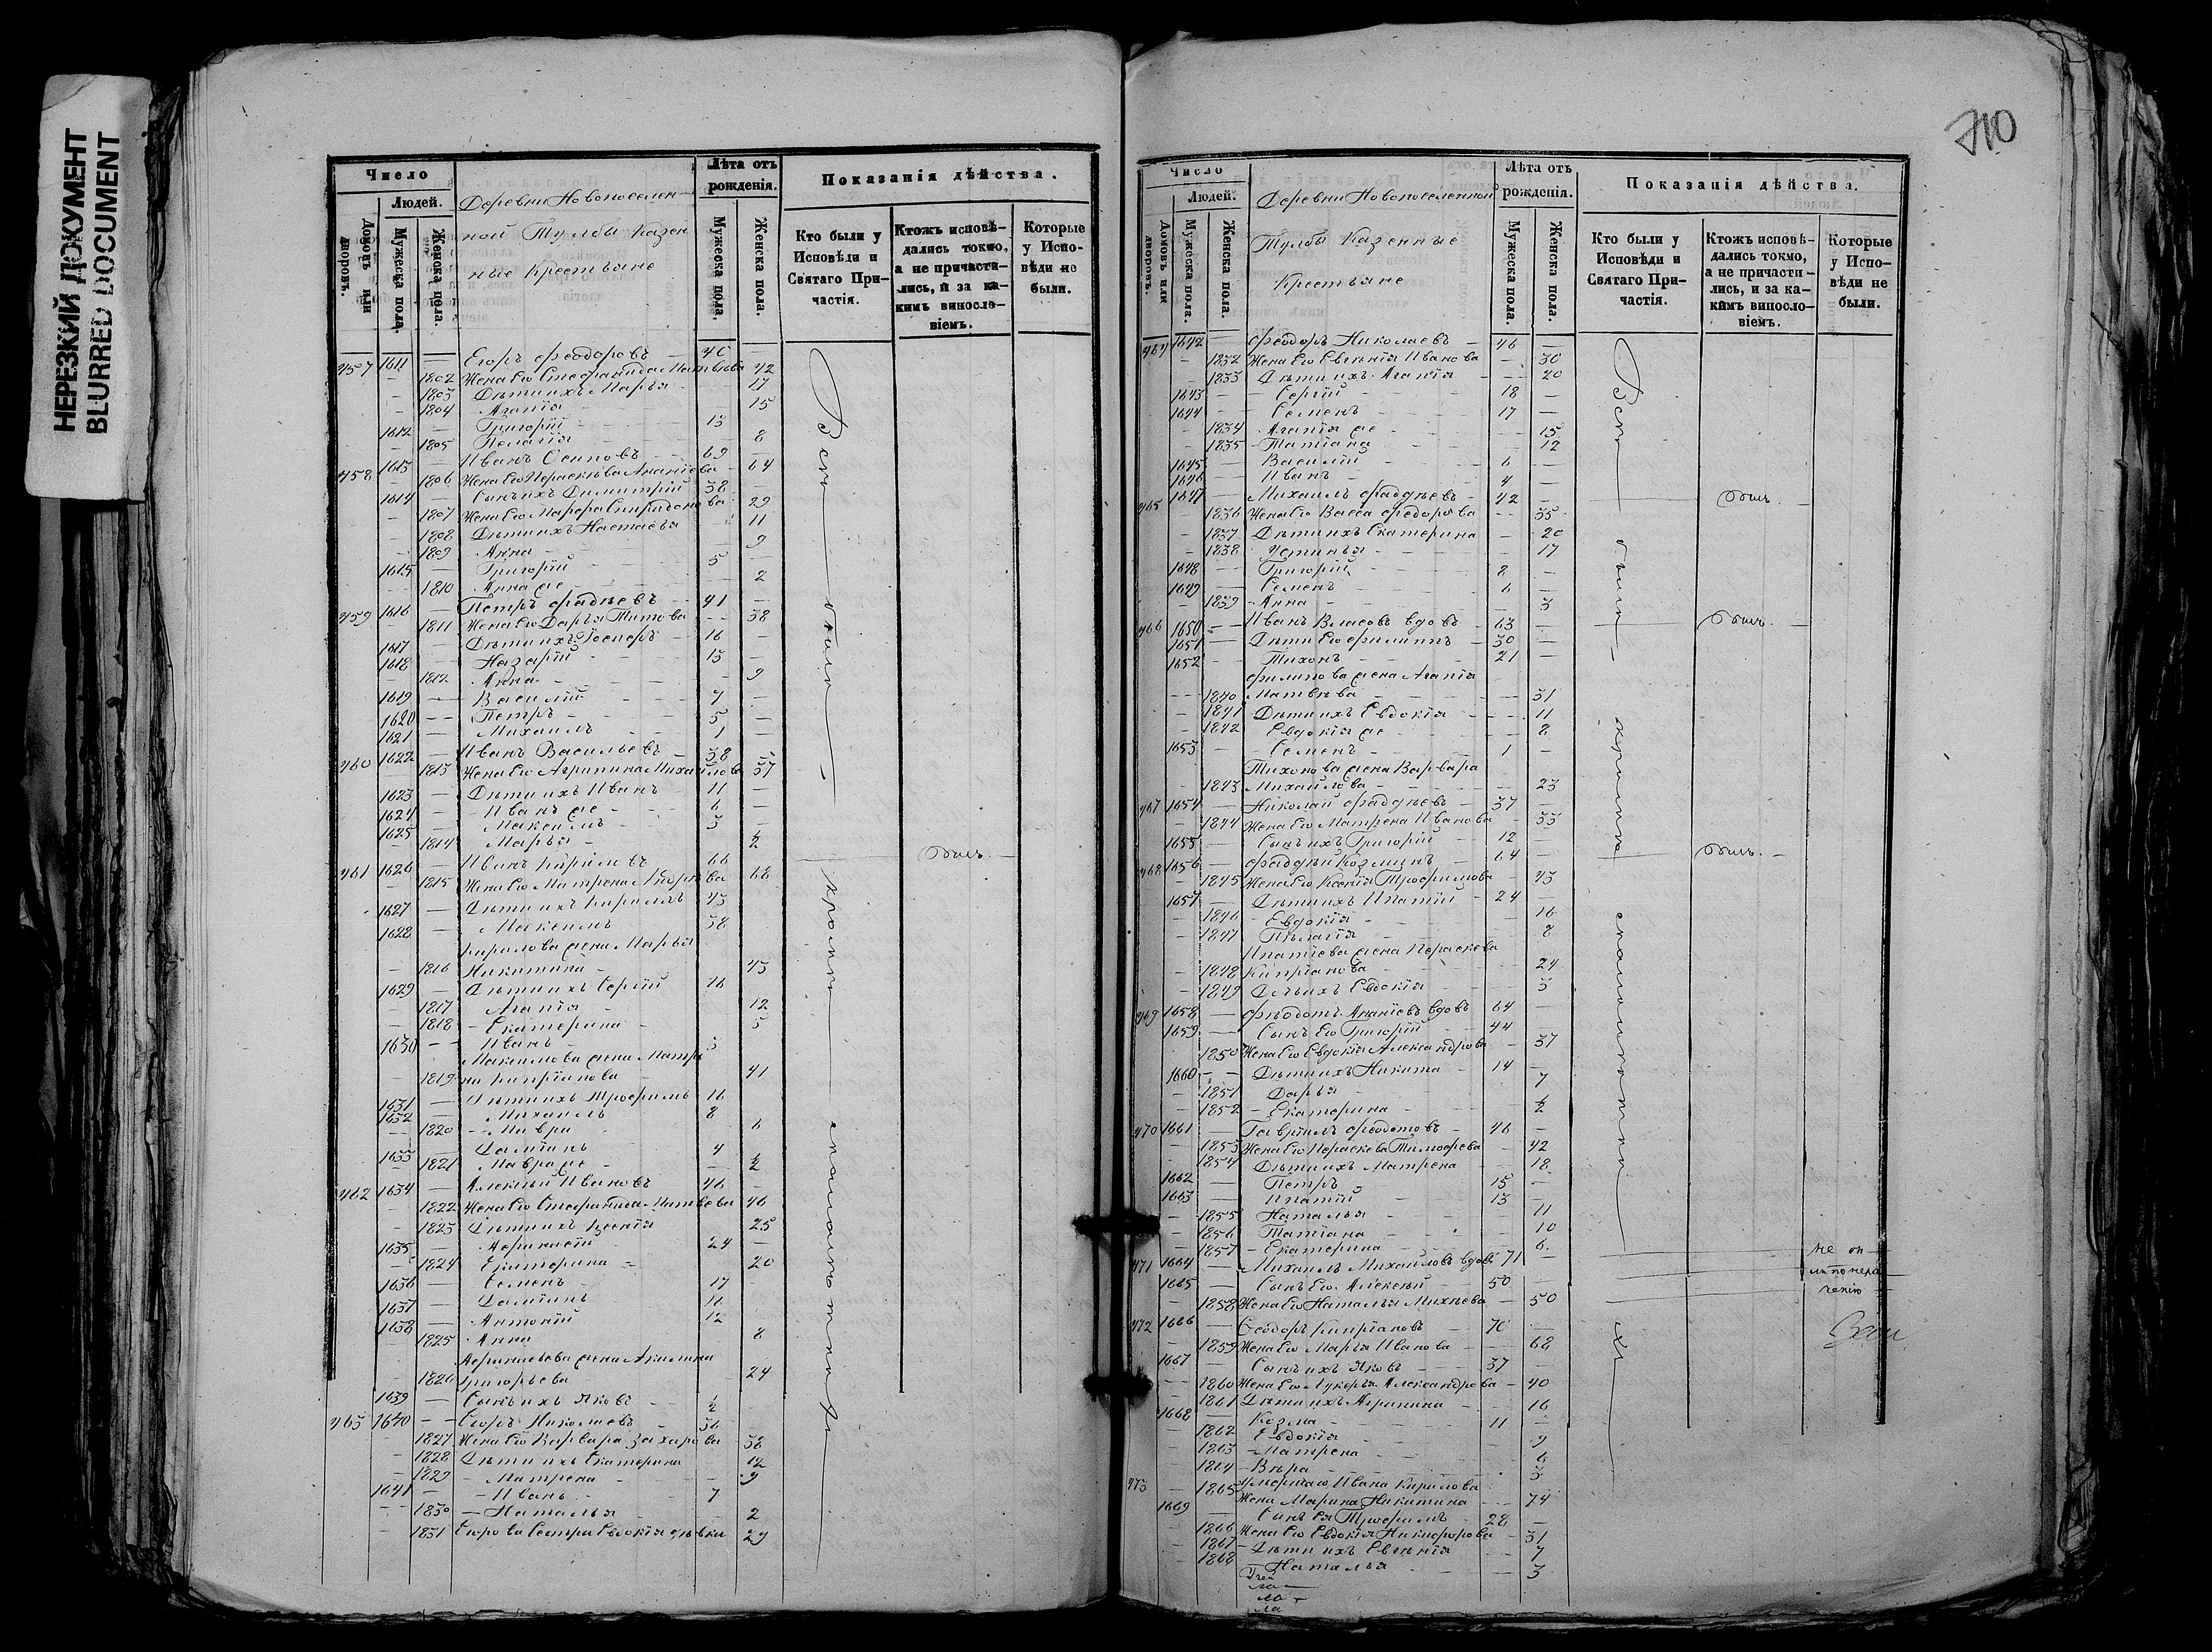 НЕРЕЗКИЙ ДОКУМЕНТ
BLURRED DOCUMENT
Число
Людей.
Домовъ или дворовъ.
Мужеска пола.
Женска пола.
Деревни Новопоселен
ной Тулбы казен
ные крестьяне
Лѣта отъ рожденія.
Мужеска пола.
Женска пола.
Показанія дѣйства.
Кто были у Исповѣди и Святаго Причастія.
Ктожъ исповѣдались токмо, а не причастились, и за какимъ винословіемъ.
Которые у Исповѣди не были.
457 1611 — Егоръ Феодоровъ — 40
1802 Жена его Стефанида Матвѣева 42
1803 Дѣти ихъ Марья — 17
1804 Агапія — 15
1612 — Григорій — 13
1805 Пелагія — 8
458 1613 — Иванъ Осиповъ — 69
1806 Жена его Параскѣва Ананіева — 64
1614 — Сынъ ихъ Димитрій 38
1807 Жена его Марфа Спиридонова 29
1808 Дѣти ихъ Настасья — 11
1809 Анна — 9
1615 — Григорій — 5
1810 Анна же — 2
459 1616 — Петръ Фадѣевъ — 41
1811 Жена его Дарья Титова — 38
1617 — Дѣти ихъ — 16
1618 — Назарій — 13
1812 Анна — 9
1619 — Василій — 7
1620 — Петръ — 5
1621 — Михаилъ — 1
460 1622 — Иванъ Васильевъ — 38
1813 Жена его Агрипина Михайлова 37
1623 — Дѣти ихъ Иванъ — 11
1624 — Иванъ же — 6
1625 — Максимъ — 3
1814 Марья — ½
461 1626 — Иванъ Кириловъ 66 — былъ
1815 Жена его Матрена 68
1627 — Дѣти ихъ Кирилъ 43
1628 — Максимъ 38
Кирилова жена Марья
1816 Никитина — 43
1629 — Дѣти ихъ Сергій 16
1817 Агапія — 12
1818 — Екатерина — 5
1630 — Иванъ — 3
Максимова жена Матре
1819 на Кипріанова — 41
1631 — Дѣти ихъ Трофимъ 16
1632 — Михаилъ 8
1820 — Мавра — 6
1633 — Даміанъ 4
1821 — Мавра же — ½
462 1634 — Алексѣй Ивановъ 46
1822 Жена его Стефанида Матвѣева 46
1823 Дѣти ихъ Ксенія 25
1635 — 24
1824 Екатерина — 20
1636 — Семенъ — 17
1637 — Даміанъ 16
1638 — Антоній 12
1825 Анна 8
жена Акилина
1826 Григорьева — 24
1639 — Сынъ ихъ Яковъ — ½
463 1640 — Егоръ Николаевъ — 36
1827 Жена его Варвара Захарова 38
1828 Дѣти ихъ Екатерина 12
1829 — Матрена — 9
1641 — Иванъ — 7
1830 — Наталья 2
1831 Егорова сестра Евдокія дѣвка 29
Всѣ были кромѣ ихъ
710
Число
Людей.
Домовъ или дворовъ.
Мужеска пола.
Женска пола.
Деревни Новопоселенной
Тулбы казенные
крестьяне
Лѣта отъ рожденія.
Мужеска пола.
Женска пола.
Показанія дѣйства.
Кто были у Исповѣди и Святаго Причастія.
Ктожъ исповѣдались токмо, а не причастились, и за какимъ винословіемъ.
Которые у Исповѣди не были.
464 1642 — Феодоръ Николаевъ — 46
1832 Жена его Евгенія Иванова — 30
1833 Дѣти ихъ Агапія — 20
1643 — Сергій — 18
1644 — Семенъ — 17
1834 Агапія же — 15
1835 Татіана — 12
1645 — Василій — 6
1646 — Иванъ — 4
465 1647 — Михаилъ Фаддѣевъ — 42 — былъ
1836 Жена его Васса Федорова — 35
1837 Дѣти ихъ Екатерина — 20
1838 Устинья — 17
1648 — Григорій — 8
1649 — Семенъ — 6
1839 Анна — 3
466 1650 — Иванъ Власовъ вдовъ — 63 — былъ
1651 — Дѣти его Филиппъ — 30
1652 — Тихонъ — 21
Филипова жена Агапія
1840 Матвѣева — 31
1841 Дѣти ихъ Евдокія — 11
1842 Евдокія же — 8
1653 — Семенъ — 1
Тихонова жена Варвара
1843 Михайлова — 23
467 1654 — Николай Фаддѣевъ — 37
1844 Жена его Матрена Иванова — 33
1655 — Сынъ ихъ Григорій — 12
468 1656 — Фаддѣй Козминъ — 64 — былъ
1845 Жена его Ксенія Трофимова — 43
1657 — Дѣти ихъ Ипатій — 24
1846 — Евдокія — 16
1847 Пелагія — 8
Ипатіева жена Параскева
1848 Кипріанова — 24
1849 Дочь ихъ Евдокія — 3
469 1658 — Феодотъ Ананіевъ вдовъ 64
1659 — Сынъ его Григорій — 44
1850 Жена его Евдокія Александрова — 37
1660 — Дѣти ихъ Никита — 14
1851 Дарья — 7
1852 — Екатерина — ½
470 1661 — Гавріилъ Феодотовъ — 46
1853 Жена его Параскева Тимофеева — 42
1854 Дѣти ихъ Матрена — 18
1662 — Петръ — 15
1663 — Ипатій — 13
1855 Наталья — 11
1856 Татіана — 10
1857 — Екатерина — 6
471 1664 — Михаилъ Михайловъ вдовъ 71
1665 — Сынъ его Алексѣй — 50
1858 Жена его Наталья Михѣева — 50
472 1666 — Ѳеодоръ Кипріановъ — 70
1859 Жена его Марья Иванова — 68
1667 — Сынъ ихъ Яковъ — 37
1860 Жена его Лукерья Александрова — 40
1861 Дѣти ихъ Агрипина — 16
1668 — Козма — 11
1862 Евдокія — 9
1863 — Матрена — 6
1864 — Вѣра — 3
473 — 1865 Умершаго Ивана Кирилова
жена Марина Никитина — 74
1669 — Сынъ ея Трофимъ — 28
1866 Жена его Евдокія Никифорова — 31
1867 — Дѣти ихъ Евгенія — 7
1868 — Наталья — 3
Всѣ были кромѣ ихъ